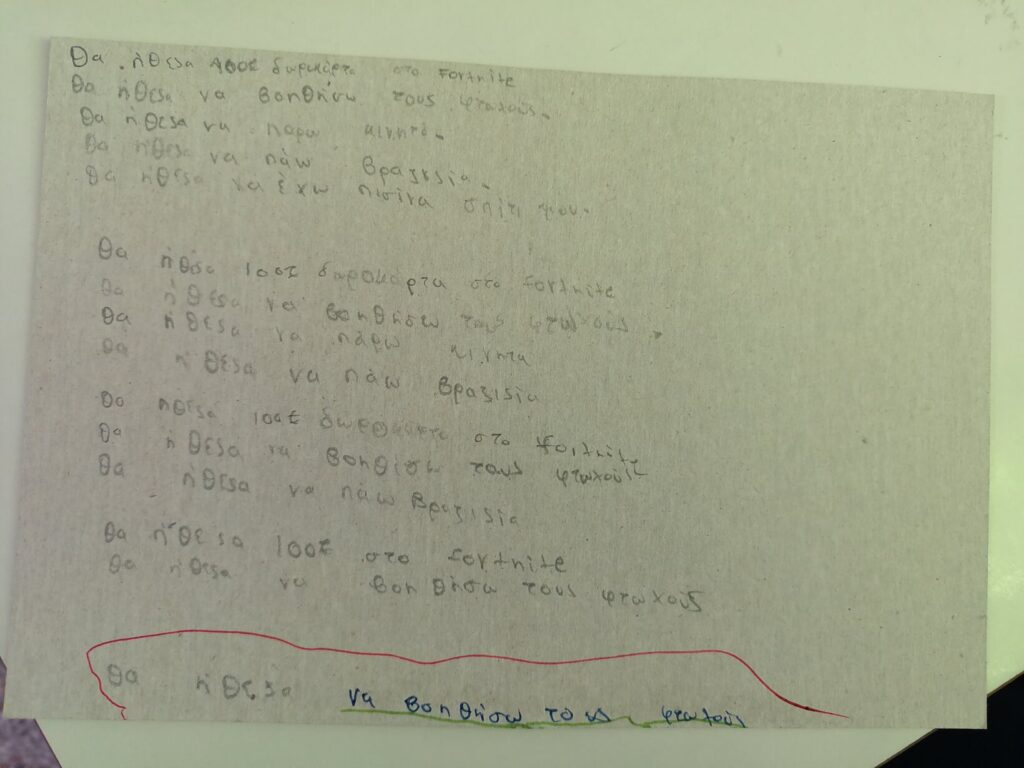 Θα ήθεςα 100€ δωροκάρτα στο Fortnite
Θα ήθεςα να βοηθήσω τους φτωχούς.
Θα ήθεςα να παρω κινητό.
Θα ήθεςα να πάω Βραζιςία.
Θα ήθεςα να έχω πισίνα σπίτι μου.
Θα ήθεςα 100€ δωροκάρτα στο fortnite
Θα ήθεςα να βοηθήσω τους φτωχούς.
Θα ήθεςα να πάρω κινητα
Θα ήθεςα να πάω Βραζιςία
Θα ήθεςα 100€ στο fortnite
Θα ήθεςα να βοηθίσω τους φτωχούς
Θα ήθεςα να πάω Βραζιςία
Θα ήθεςα 100€ στο fortnite
Θα ήθεςα να βοηθήσω τους φτωχούς
Θα ήθεςα να βοηθήσω τους φτωχούς